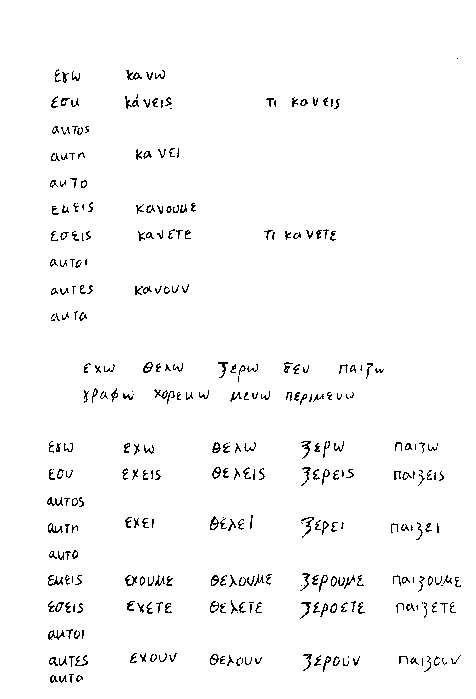 εγω κανω
εσυ κάνεις τι κανεις
αυτος
αυτη κανει
αυτο
εμεις κανουμε
εσεις κανετε τι κανετε
αυτοι
αυτες κανουν
αυτα
εχω θελω ξερω δεν παιζω
γραφω χορευω μενω περιμενω
εγω εχω θελω ξερω παιζω
εσυ εχεις θελεις ξερεις παιζεις
αυτος
αυτη εχει θελει ξερει παιζει
αυτο
εμεις εχουμε θελουμε ξερουμε παιζουμε
εσεις εχετε θελετε ξεροετε παιζετε
αυτοι
αυτες εχουν θελουν ξερουν παιζουν
αυτα